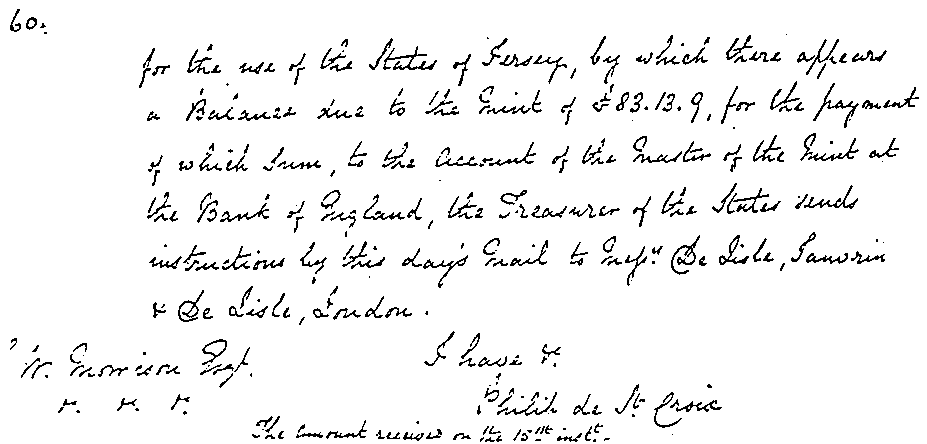 60.
for the use of the States of Jersey, by which there appears
a Balance due to the Mint of £83.13.9, for the payment
of which Sum, to the Account of the Master of the Mint at
the Bank of England, the Treasurer of the States sends
instructions by this day's Mail to Messrs De Lisle, Janvrin
& De Lisle, London.
I have &.
W. Morrison Esqr.
&. &. &.
Philip de St Croix
The amount received on the 15th inst.-